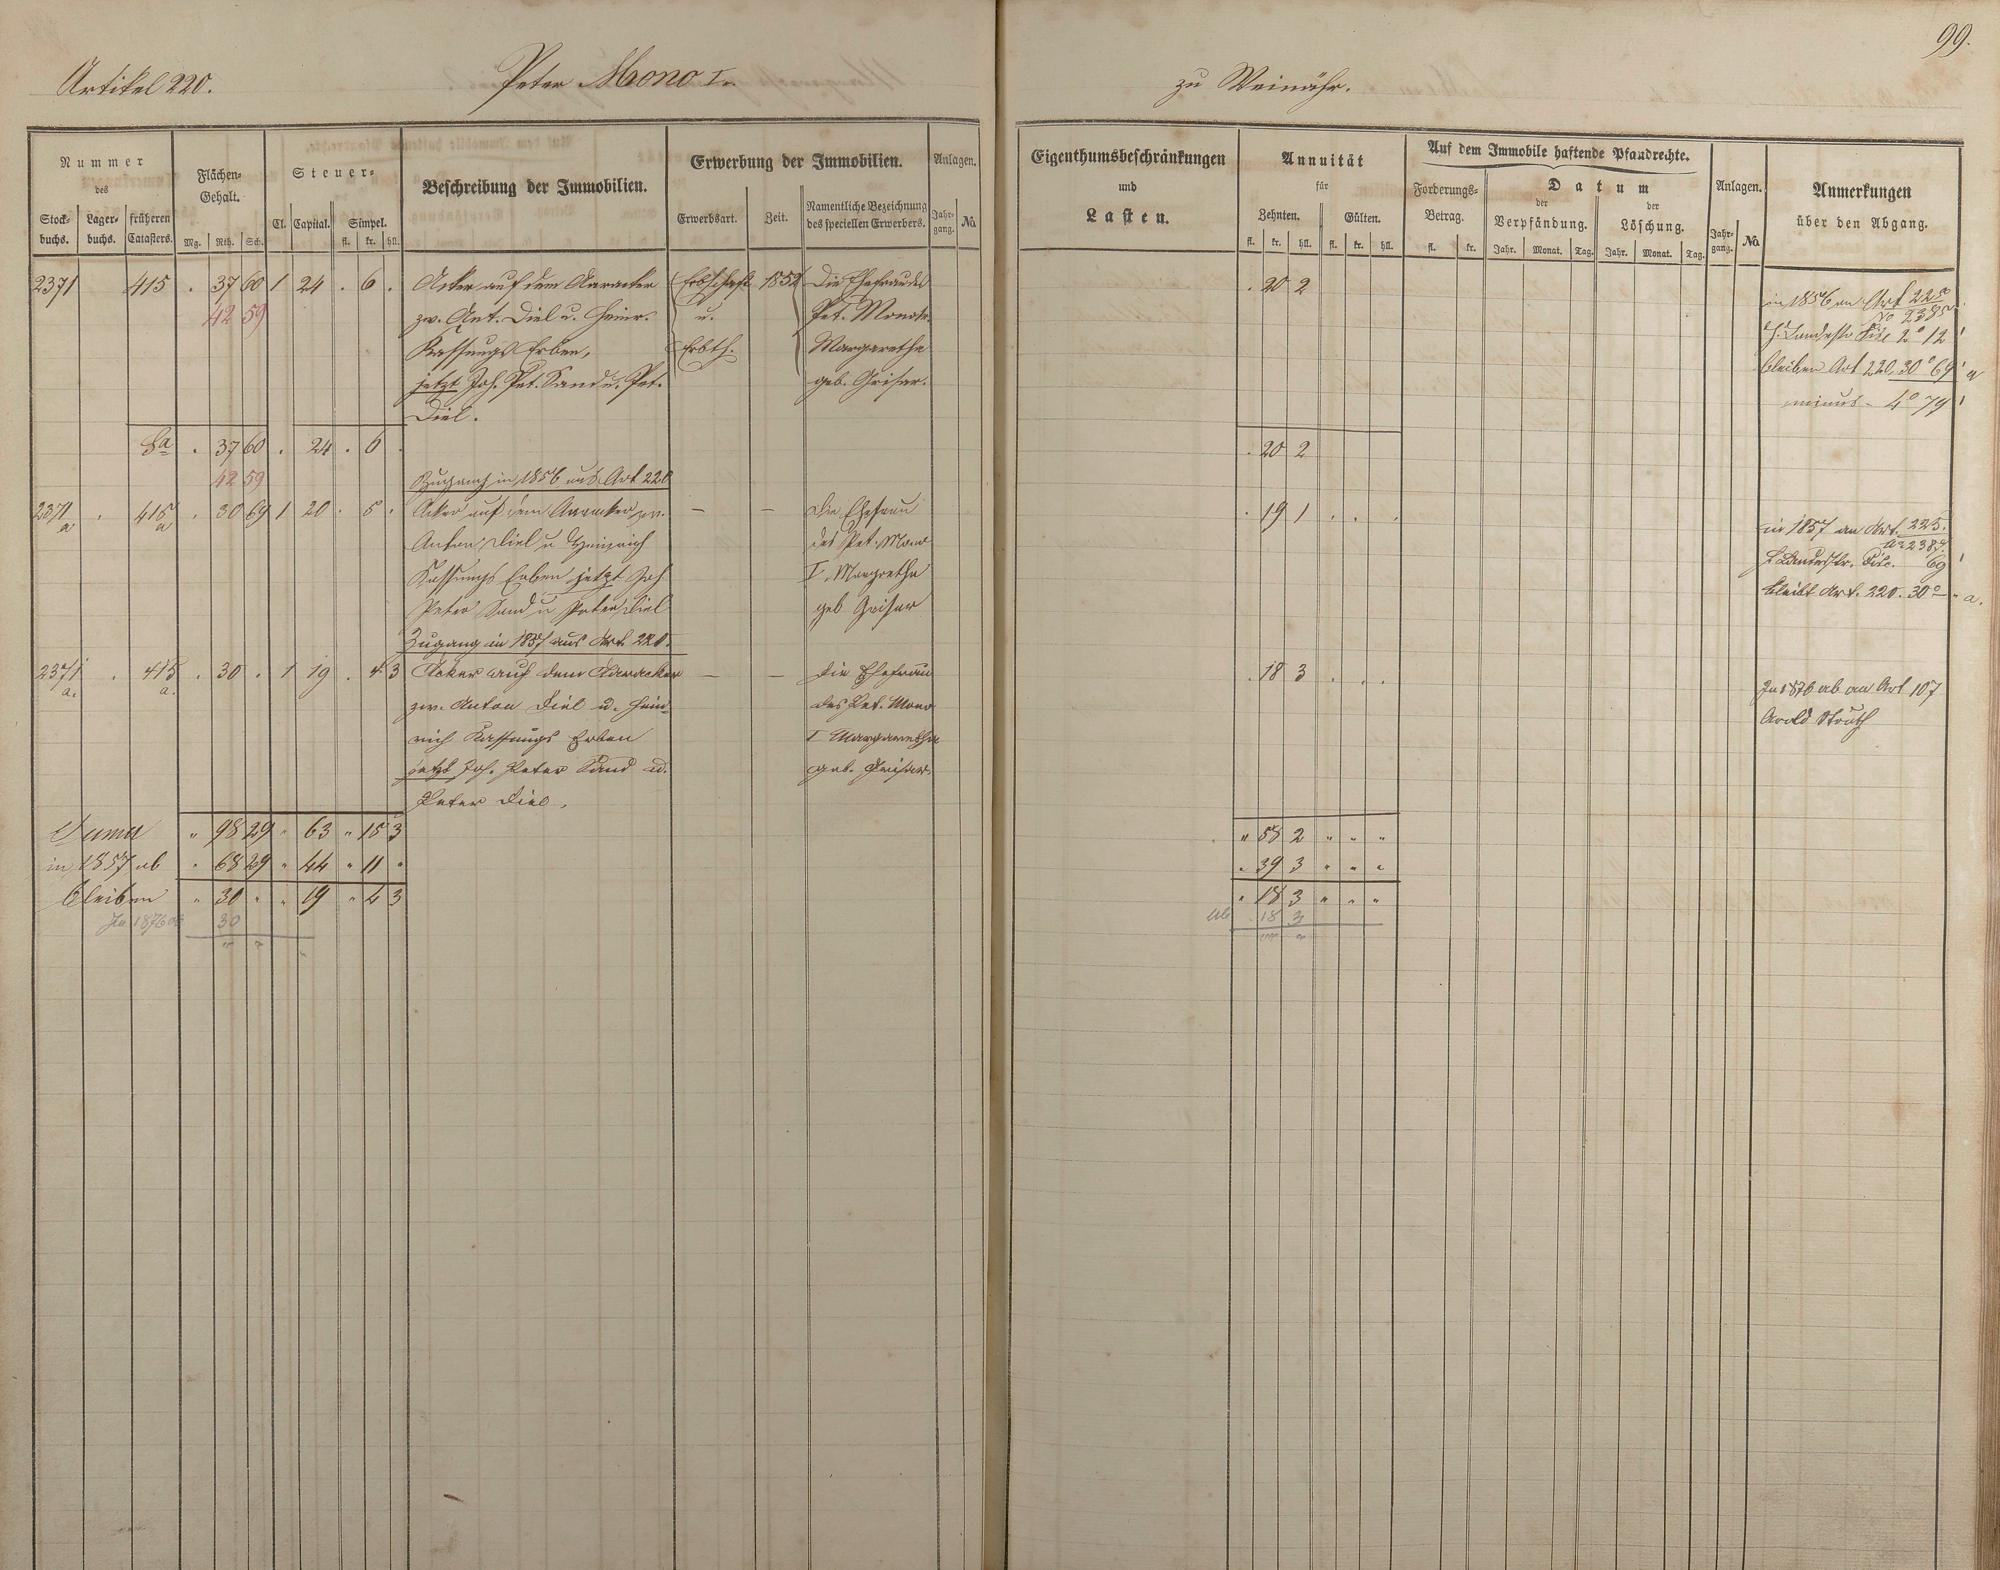 99.
Artikel 220. Peter Mono I. zu Weinähr.
Nummer des
Stock- buchs. Lager- buchs. früheren Catasters.
Flächen- Gehalt.
Mg. Rth. Sch.
Steuer-
Cl. Capital. Simpel.
fl. kr. hll.
Beschreibung der Immobilien.
Erwerbung der Immobilien.
Erwerbsart. Zeit. Namentliche Bezeichnung des speciellen Erwerbers.
Anlagen.
Jahr- gang. No.
Eigenthumsbeschränkungen und Lasten.
Annuität für
Zehnten. Gülten.
fl. kr. hll. fl. kr. hll.
Auf dem Immobile haftende Pfandrechte.
Forderungs- Betrag.
fl. kr.
Datum
der Verpfändung. der Löschung.
Jahr. Monat. Tag. Jahr. Monat. Tag.
Anlagen.
Jahr- gang. No.
Anmerkungen über den Abgang.
2371 415 . 37 60 1 24 . 6 . Acker auf dem Aaracker Erbschaft 1852 Die Ehefrau des . 20 2
42 59 zw. Ant. Diel u. Heinr. u. Pet. Mono I.
Kassungs Erben, Erbth. Margaretha
jetzt Joh. Pet. Sand u. Pet. geb. Griser.
Diel.
in 1856 an Art 225
No 2385
h. Landesstr Fisc 2° 12'
bleiben Art 220. 30° 69' a
minus - 4° 79'
Sa . 37 60 . 24 . 6 . . 20 2
42 59 Zugang in 1856 aus Art 220
2371 a . 415 a . 30 69 1 20 . 5 . Acker auf dem Aaracker zw. — — Die Ehefrau . 19 1 . . .
Anton Diel u Heinrich des Pet. Mono
Kassungs Erben jetzt Joh I. Margretha
Peter Sand u Peter Diel geb Griser
in 1857 an Art. 225.
No 2385.
h Landesstr. Fisc. 69'
bleibt Art. 220. 30° - a.
Zugang in 1857 aus Art. 220.
2371 a. . 415 a. . 30 . 1 19 . 4 3 Acker auf dem Aaracker — — Die Ehefrau . 18 3 . . .
zw. Anton Diel u. Hein- des Pet. Mono
rich Kassungs Erben I Margaretha
jetzt Joh. Peter Sand u. geb. Griser.
Peter Diel.
In 1876 ab an Art 107
Arold Struth
Suma " 98 29 " 63 " 15 3 " 58 2 " " "
in 1857 ab " 68 29 " 44 " 11 " " 39 3 " " "
bleiben " 30 " " 19 " 4 3 " 18 3 " " "
In 1876 ab 30 ab . 18 3
" " " "